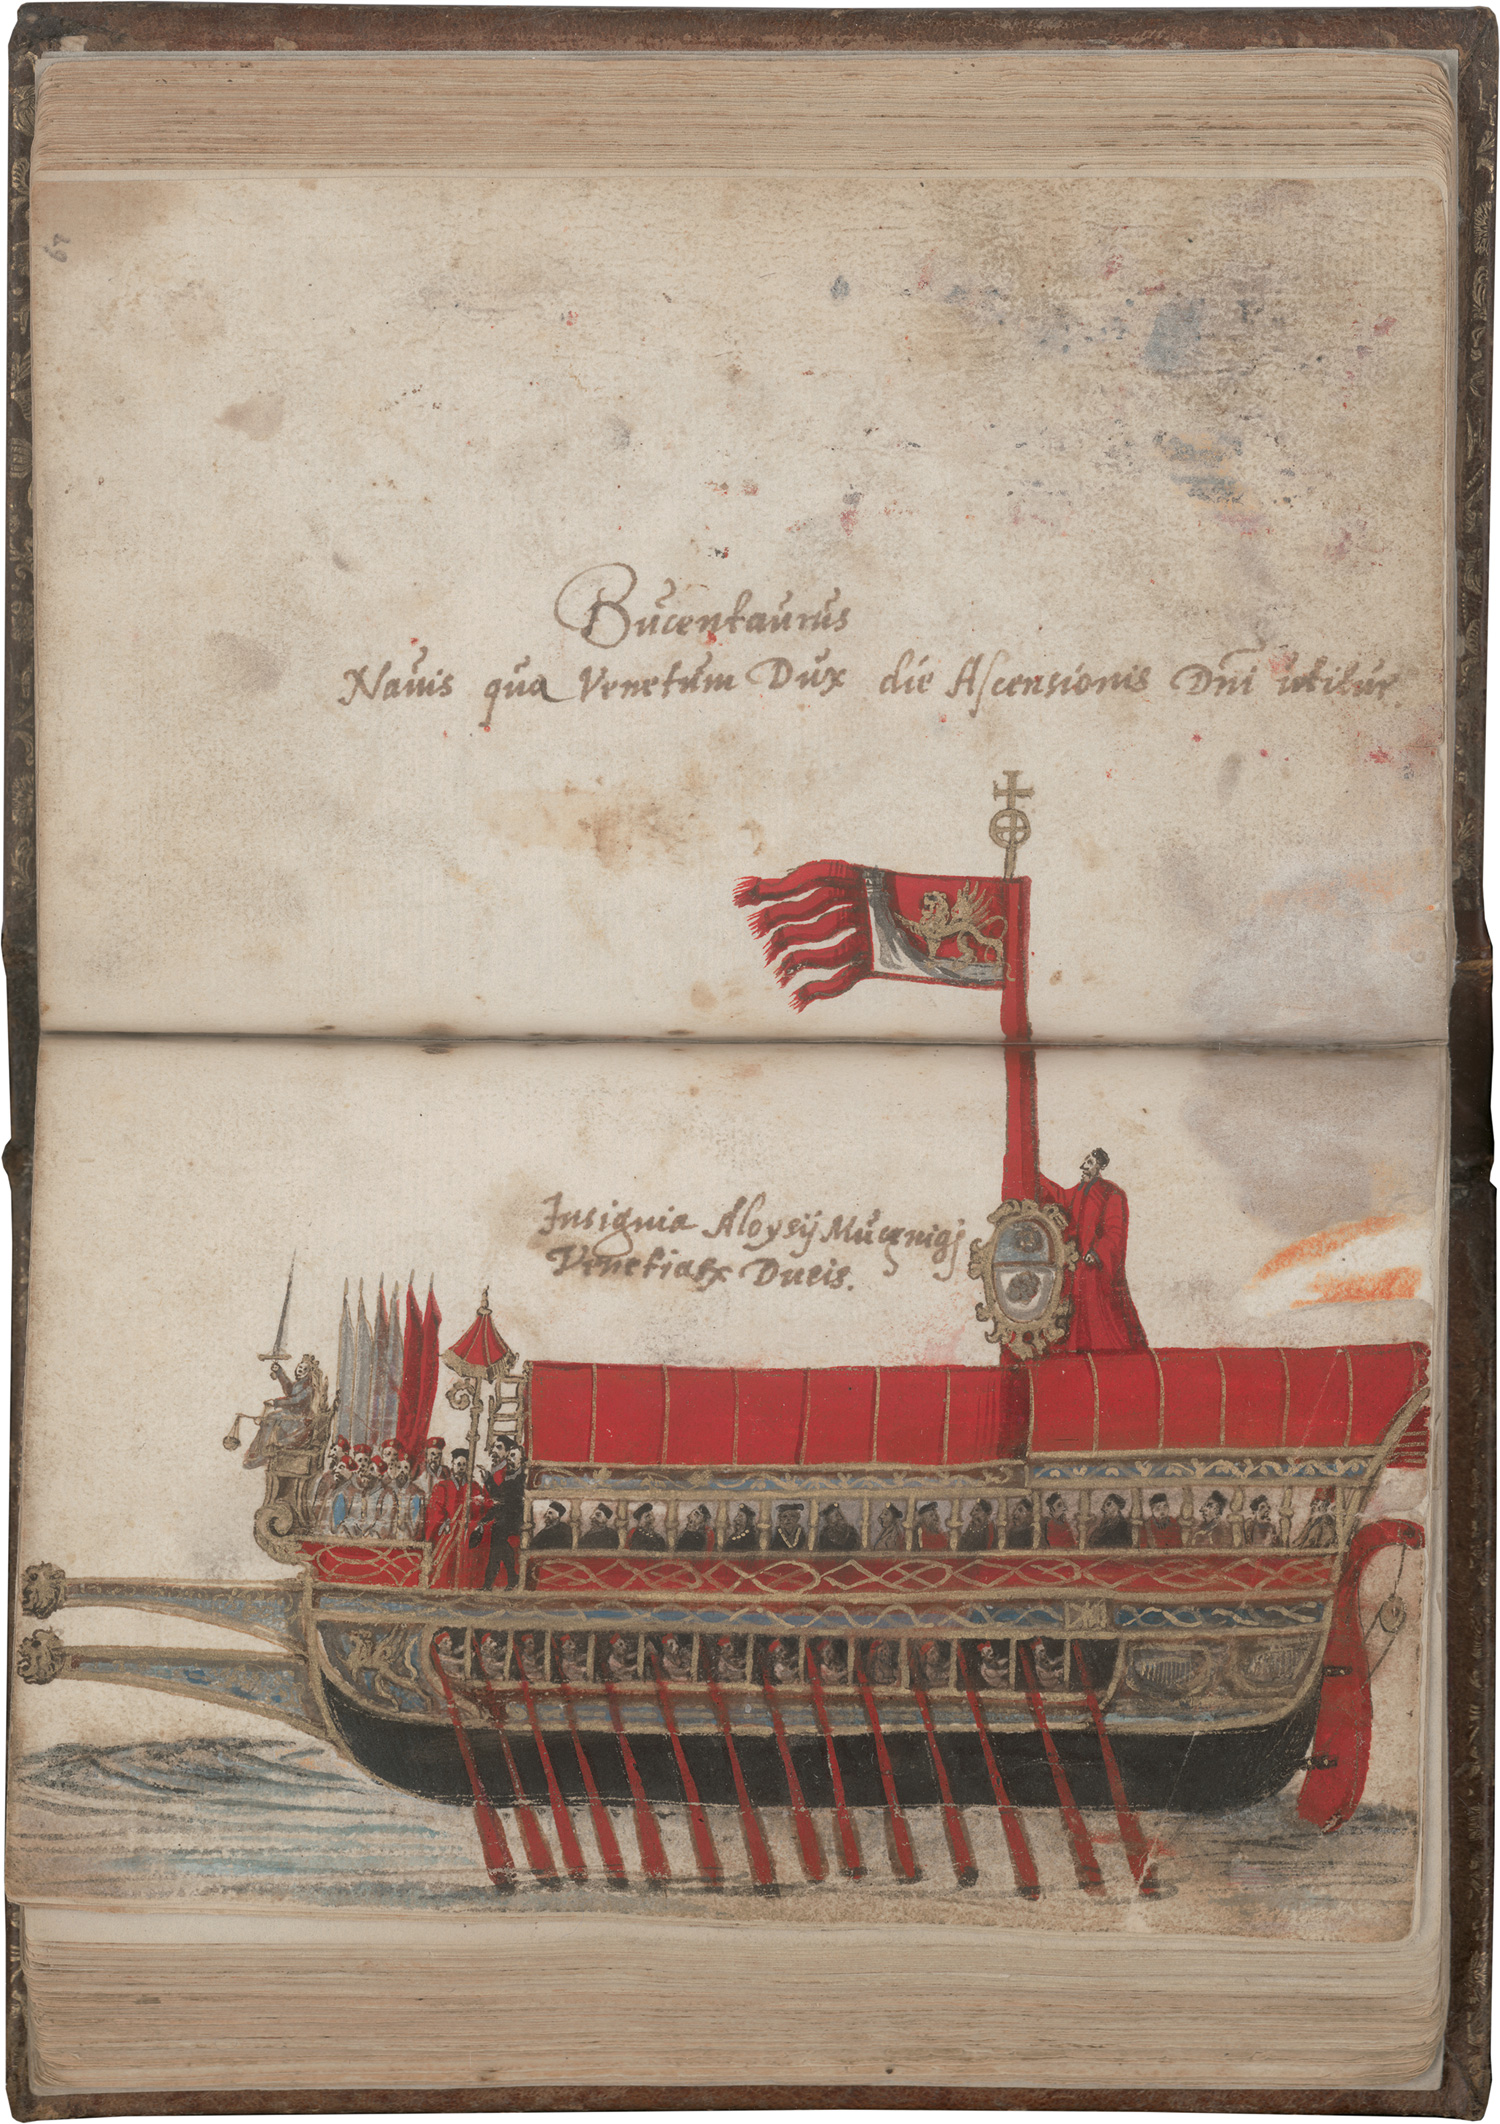 67
Bucentaurus
Nauis qua Venetum Dux die Ascensionis Dnī utitur
Insignia Aloysij Mucenigj
Venetiarx Ducis.